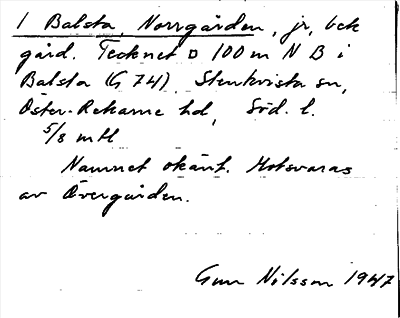 1 Balsta, Norrgården, jr, bek
gård. Tecknet ¤ 100 m N B i
Balsta (G 74), Stenkvista sn,
Öster-Rekarne hd, Söd. l.
5/8 mH
Namnet okänt. Motsvaras
av Övergården.
Gun Nilsson 1947